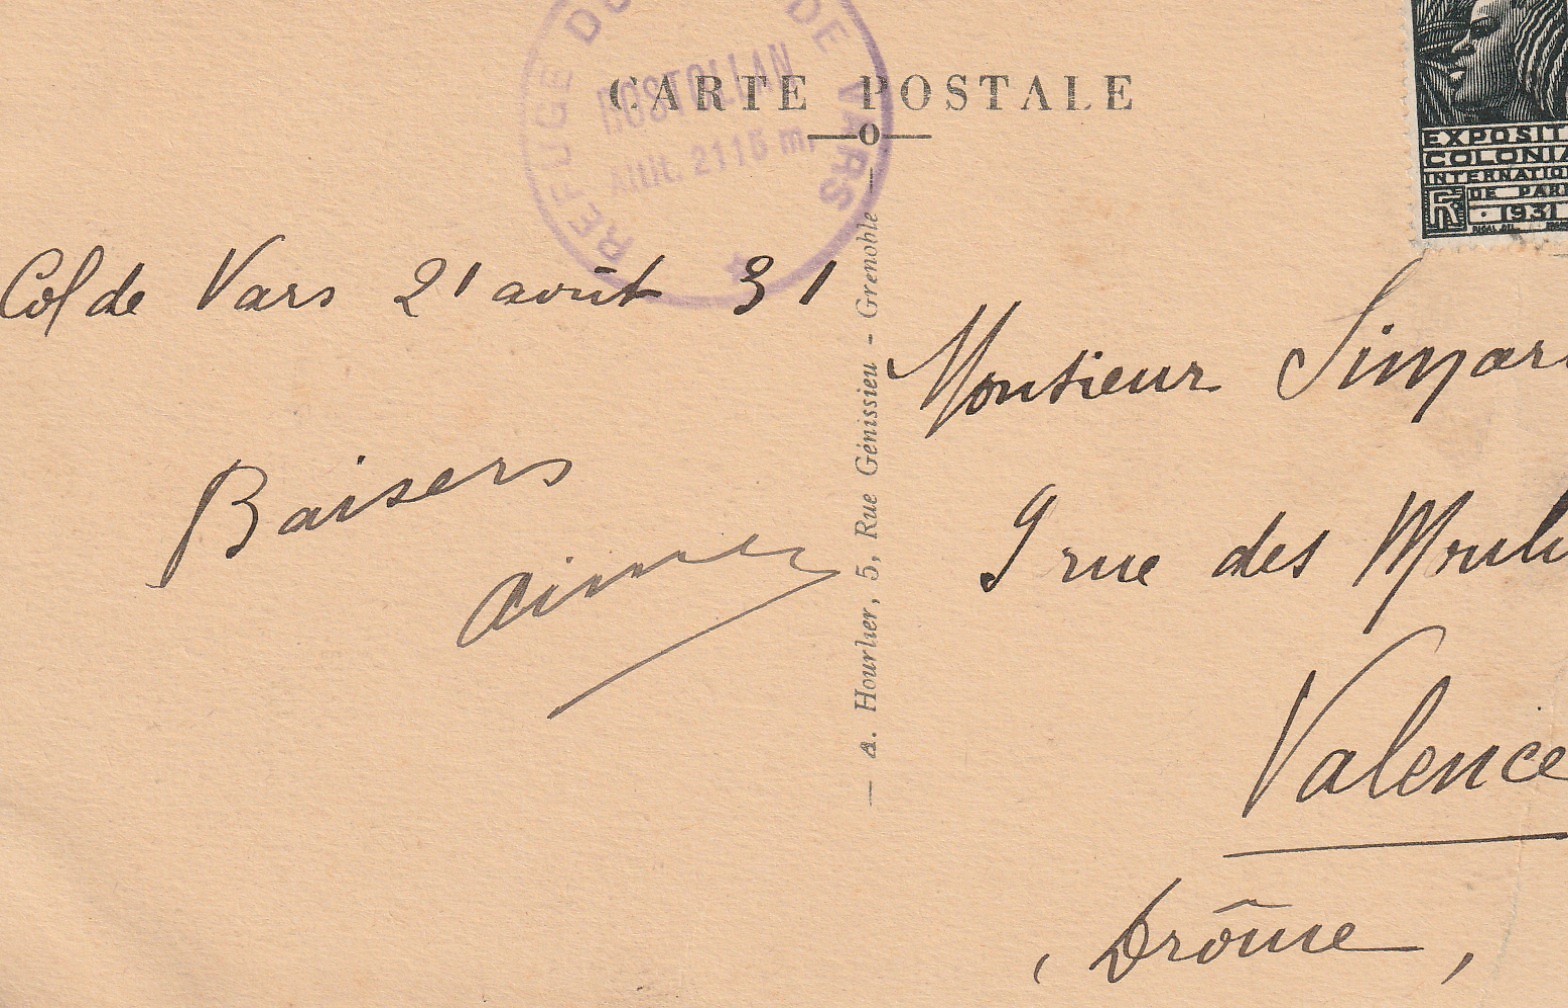 REFUGE DU COL DE VARS
ROSTOLLAN
Altit. 2115 m.
CARTE POSTALE
EXPOSIT
COLONIA
INTERNATION
DE PARI
1931
Col de Vars 21 août 31
Baisers
A. Hourlier, 5, Rue Génissieu - Grenoble
Monsieur Simar
9 rue des Mouli
Valence
(Drôme)